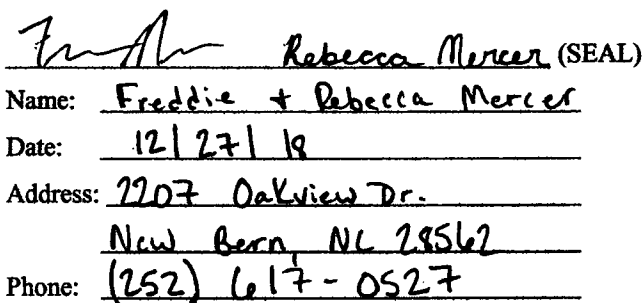 Rebecca Mercer (SEAL)
Name: Freddie + Rebecca Mercer
Date: 12/27/18
Address: 2207 Oakview Dr.
New Bern, NC 28562
Phone: (252) 617-0527